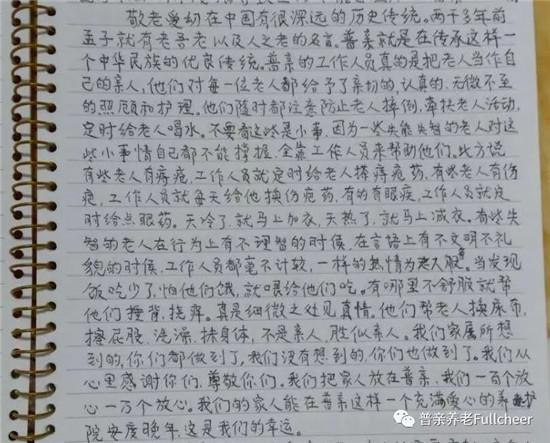 敬老爱幼在中国有很深远的历史传统。两千多年前
孟子就有老吾老以及人之老的名言。普亲就是在传承这样一
个中华民族的优良传统。普亲的工作人员真的是把老人当作自
己的亲人，他们对每一位老人都给予了亲切的，认真的，无微不至
的照顾和护理。他们随时都注意防止老人摔倒，牵扶老人活动，
定时给老人喝水。不要看这些是小事，因为一些失能失智的老人对这
些小事情自己都不能掌握，全靠工作人员来帮助他们。比方说
有些老人有痔疮，工作人员就定时给老人擦痔疮药，有些老人有伤
疤，工作人员就每天给他换伤疤药，有的有眼疾，工作人员就定
时给点眼药。天冷了，就马上加衣，天热了，就马上减衣。有些失
智的老人在行为上有不理智的时候，在言语上有不文明不礼
貌的时候，工作人员都毫不计较，一样的热情为老人服务。当发现
饭吃少了，怕他们饿，就喂给他们吃。有哪里不舒服就帮
他们捶背，挠痒。真是细微之处见真情。他们帮老人换尿布，
擦屁股，洗澡，抹身体，不是亲人，胜似亲人。我们家属所想
到的，你们都做到了，我们没有想到的，你们也做到了。我们从
心里感谢你们，尊敬你们，我们把家人放在普亲，我们一百个放
心一万个放心。我们的家人能在普亲这样一个充满爱心的养护
院安度晚年，这是我们的幸运。
普亲养老Fullcheer